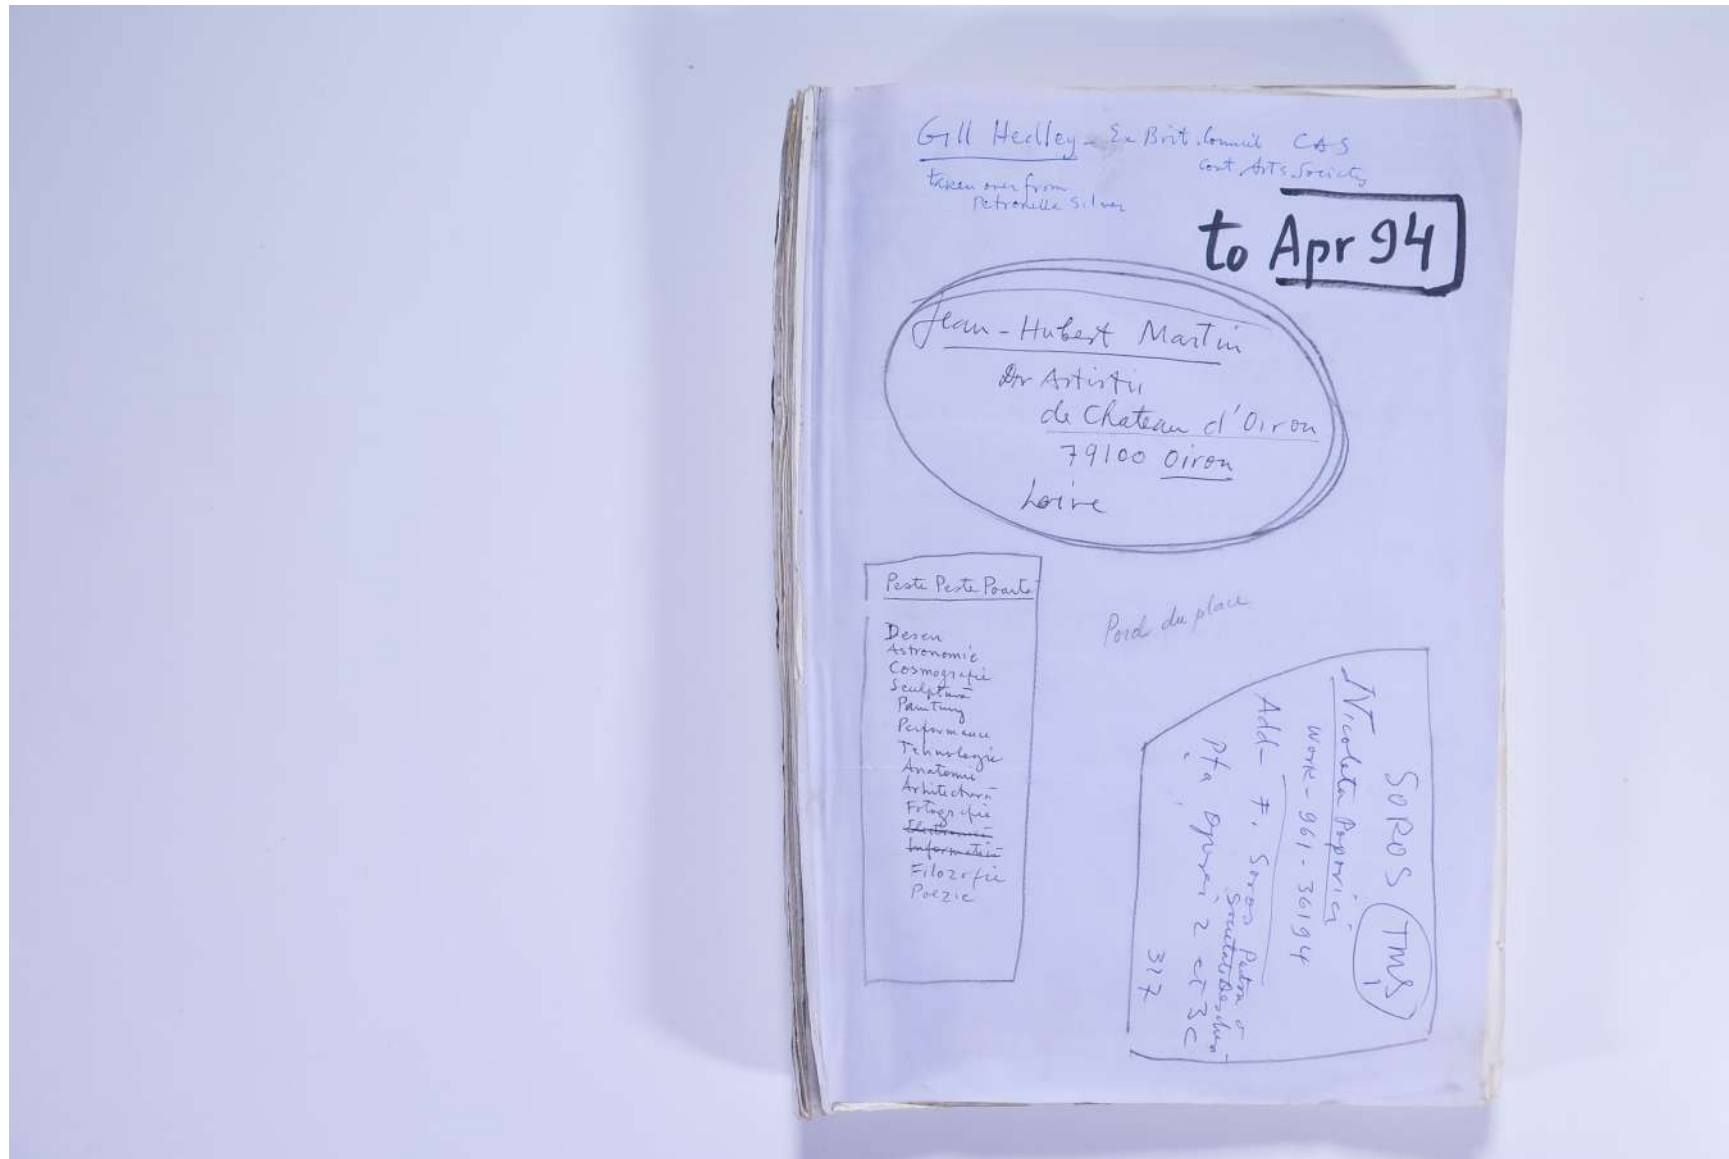 Gill Hedley - Ex Brit. Council CAS
Cont. Arts Society
taken over from
Petronella Silver
to Apr 94
Jean-Hubert Martin
Dr Artistic
de Chateau d'Oiron
79100 Oiron
Loire
Peste Peste Poarta
Desen
Astronomie
Cosmografie
Sculptură
Painting
Performance
Tehnologie
Anatomie
Arhitectură
Fotografie
Electronică
Informatică
Filozofie
Poezie
du place
SOROS TMŞ
Nicoleta Popovici
Work - 961-36194
Add - F. Soros Pentru o
Societate Deschisă
Pţa Operei 2 et 3 C
317